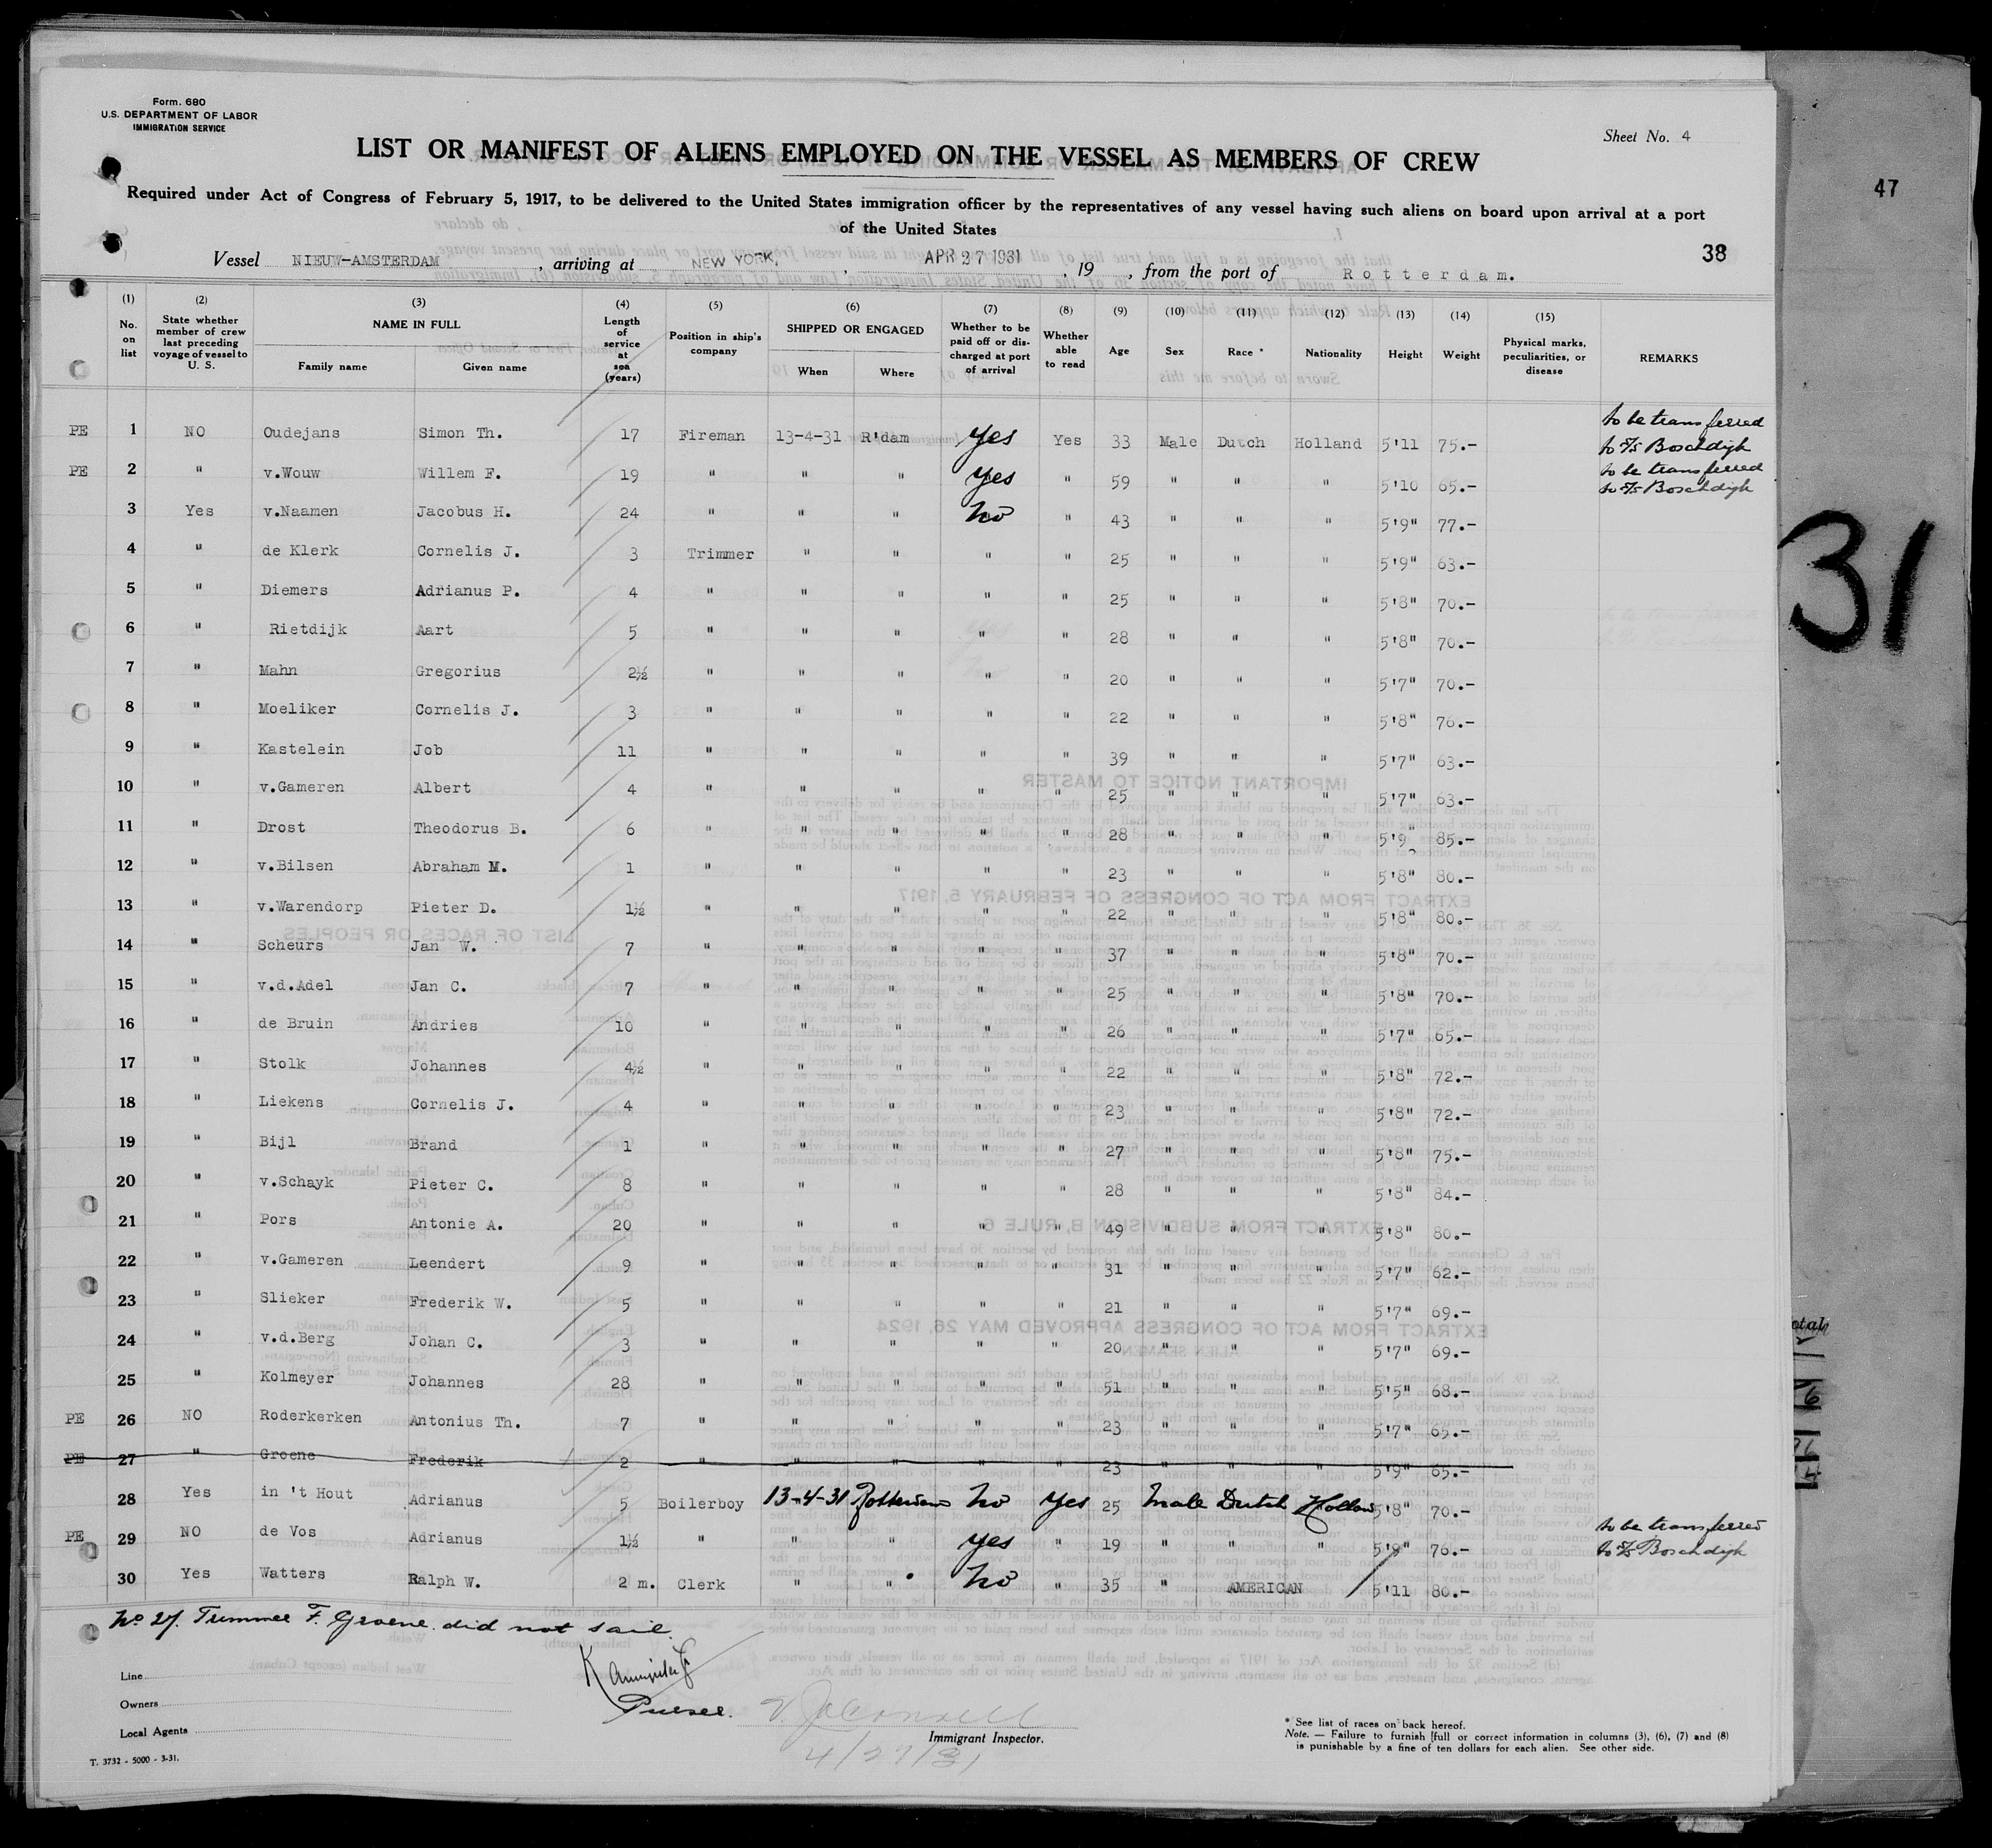 Form. 680
U.S. DEPARTMENT OF LABOR
IMMIGRATION SERVICE
Sheet No. 4
LIST OR MANIFEST OF ALIENS EMPLOYED ON THE VESSEL AS MEMBERS OF CREW
47
Required under Act of Congress of February 5, 1917, to be delivered to the United States immigration officer by the representatives of any vessel having such aliens on board upon arrival at a port
of the United States
38
Vessel NIEUW-AMSTERDAM, arriving at NEW YORK, APR 27 1931, 19 , from the port of Rotterdam.
(1) No. on list (2) State whether member of crew last preceding voyage of vessel to U. S. (3) NAME IN FULL Family name Given name (4) Length of service at sea (years) (5) Position in ship's company (6) SHIPPED OR ENGAGED When Where (7) Whether to be paid off or discharged at port of arrival (8) Whether able to read (9) Age (10) Sex (11) Race * (12) Nationality (13) Height (14) Weight (15) Physical marks, peculiarities, or disease REMARKS
PE 1 NO Oudejans Simon Th. 17 Fireman 13-4-31 R'dam Yes Yes 33 Male Dutch Holland 5'11 75.- to be transferred to S/S Boschdijk
PE 2 " v.Wouw Willem F. 19 " " " Yes " 59 " " " 5'10 65.- to be transferred to S/S Boschdijk
3 Yes v.Naamen Jacobus H. 24 " " " No " 43 " " " 5'9" 77.-
4 " de Klerk Cornelis J. 3 Trimmer " " " " 25 " " " 5'9" 63.-
5 " Diemers Adrianus P. 4 " " " " " 25 " " " 5'8" 70.-
6 " Rietdijk Aart 5 " " " " " 28 " " " 5'8" 70.-
7 " Mahn Gregorius 2½ " " " " " 20 " " " 5'7" 70.-
8 " Moeliker Cornelis J. 3 " " " " " 22 " " " 5'8" 76.-
9 " Kastelein Job 11 " " " " " 39 " " " 5'7" 63.-
10 " v.Gameren Albert 4 " " " " " 25 " " " 5'7" 63.-
11 " Drost Theodorus B. 6 " " " " " 28 " " " 5'9" 85.-
12 " v.Bilsen Abraham M. 1 " " " " " 23 " " " 5'8" 80.-
13 " v.Warendorp Pieter D. 1½ " " " " " 22 " " " 5'8" 80.-
14 " Scheurs Jan W. 7 " " " " " 37 " " " 5'8" 70.-
15 " v.d.Adel Jan C. 7 " " " " " 25 " " " 5'8" 70.-
16 " de Bruin Andries 10 " " " " " 26 " " " 5'7" 65.-
17 " Stolk Johannes 4½ " " " " " 22 " " " 5'8" 72.-
18 " Liekens Cornelis J. 4 " " " " " 23 " " " 5'8" 72.-
19 " Bijl Brand 1 " " " " " 27 " " " 5'8" 75.-
20 " v.Schayk Pieter C. 8 " " " " " 28 " " " 5'8" 84.-
21 " Pors Antonie A. 20 " " " " " 49 " " " 5'8" 80.-
22 " v.Gameren Leendert 9 " " " " " 31 " " " 5'7" 62.-
23 " Slieker Frederik W. 5 " " " " " 21 " " " 5'7" 69.-
24 " v.d.Berg Johan C. 3 " " " " " 20 " " " 5'7" 69.-
25 " Kolmeyer Johannes 28 " " " " " 51 " " " 5'5" 68.-
PE 26 NO Roderkerken Antonius Th. 7 " " " " " 23 " " " 5'7" 65.-
PE 27 " Groene Frederik 2 " " " " " 23 " " " 5'9" 65.-
28 Yes in 't Hout Adrianus 5 Boilerboy 13-4-31 Rotterdam No Yes 25 Male Dutch Holland 5'8" 70.-
PE 29 NO de Vos Adrianus 1½ " " " yes " 19 " " " 5'8" 76.- to be transferred to S/S Boschdijk
30 Yes Watters Ralph W. 2 m. Clerk " " No " 35 " AMERICAN 5'11 80.-
31
otal
No 27. Trimmer F. Groene did not sail.
Line
Purser.
Owners
Local Agents
Immigrant Inspector.
4/27/31
* See list of races on back hereof.
Note. — Failure to furnish full or correct information in columns (3), (6), (7) and (8)
is punishable by a fine of ten dollars for each alien. See other side.
T. 3732 - 5000 - 3-31.